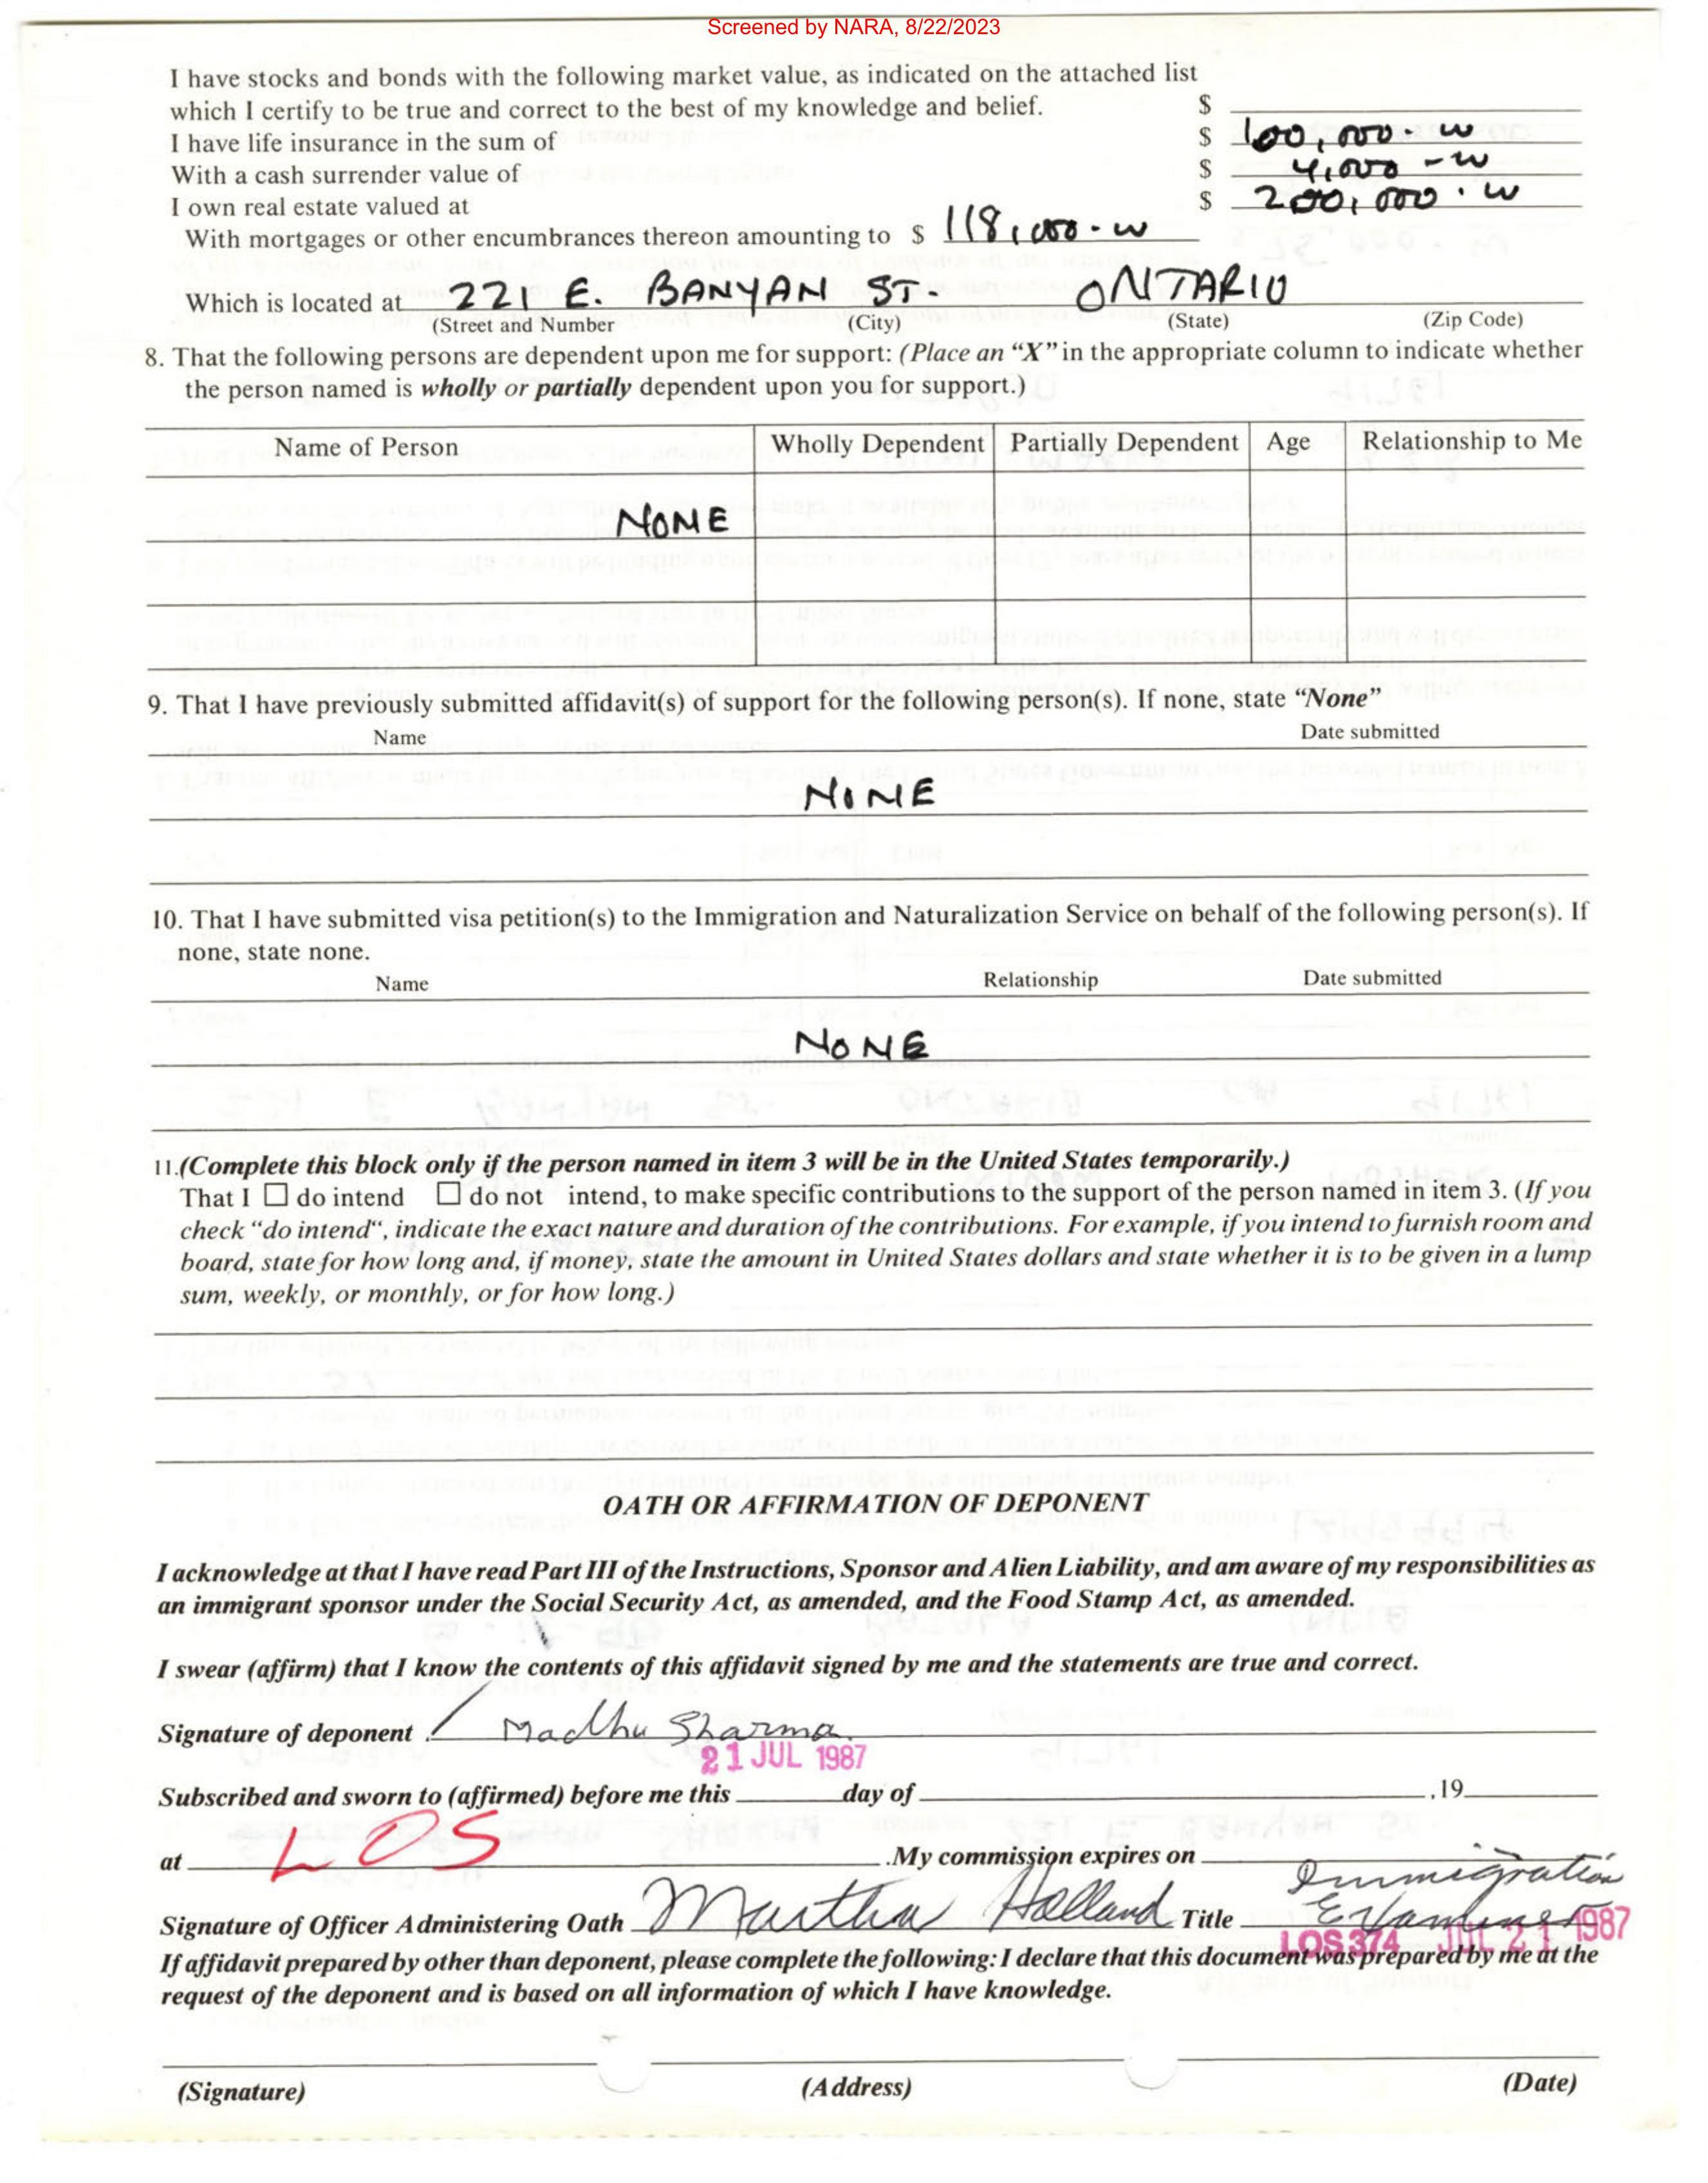 Screened by NARA, 8/22/2023
I have stocks and bonds with the following market value, as indicated on the attached list
which I certify to be true and correct to the best of my knowledge and belief. $
I have life insurance in the sum of $ 100,000.
With a cash surrender value of $ 4,000 -
I own real estate valued at $ 200,000.
With mortgages or other encumbrances thereon amounting to $ 118,000.
Which is located at 221 E. BANYAN ST. ONTARIO
(Street and Number (City) (State) (Zip Code)
8. That the following persons are dependent upon me for support: (Place an “X” in the appropriate column to indicate whether
the person named is wholly or partially dependent upon you for support.)
Name of Person Wholly Dependent Partially Dependent Age Relationship to Me
NONE
9. That I have previously submitted affidavit(s) of support for the following person(s). If none, state “None”
Name Date submitted
NONE
10. That I have submitted visa petition(s) to the Immigration and Naturalization Service on behalf of the following person(s). If
none, state none.
Name Relationship Date submitted
NONE
11.(Complete this block only if the person named in item 3 will be in the United States temporarily.)
That I ☐ do intend ☐ do not intend, to make specific contributions to the support of the person named in item 3. (If you
check “do intend“, indicate the exact nature and duration of the contributions. For example, if you intend to furnish room and
board, state for how long and, if money, state the amount in United States dollars and state whether it is to be given in a lump
sum, weekly, or monthly, or for how long.)
OATH OR AFFIRMATION OF DEPONENT
I acknowledge at that I have read Part III of the Instructions, Sponsor and Alien Liability, and am aware of my responsibilities as
an immigrant sponsor under the Social Security Act, as amended, and the Food Stamp Act, as amended.
I swear (affirm) that I know the contents of this affidavit signed by me and the statements are true and correct.
Signature of deponent Madhu Sharma
21 JUL 1987
Subscribed and sworn to (affirmed) before me this day of ,19
at LOS .My commission expires on
Signature of Officer Administering Oath Martha Holland Title Immigration Examiner
LOS 374 JUL 21 1987
If affidavit prepared by other than deponent, please complete the following: I declare that this document was prepared by me at the
request of the deponent and is based on all information of which I have knowledge.
(Signature) (Address) (Date)